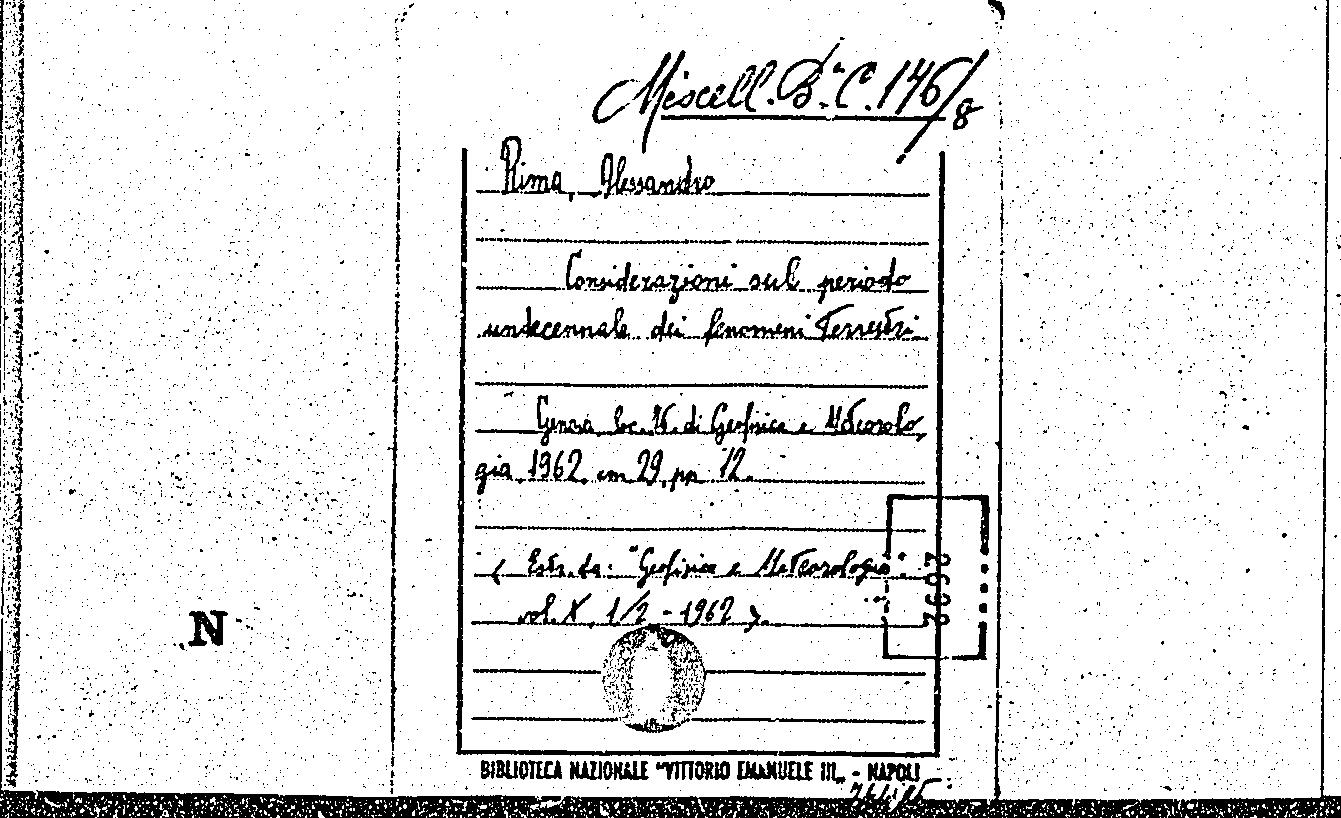 Miscell. Bª. C. 146/8
Rima, Alessandro
Considerazioni sul periodo
undecennale dei fenomeni terrestri
Genova, di Geofisica e Meteorolo,
gia, 1962, cm 29, pp 12.
( Estr. da: "Geofisica e Meteorologia".
vol. X. 1/2 - 1962 ).
N
BIBLIOTECA NAZIONALE "VITTORIO EMANUELE III„ - NAPOLI